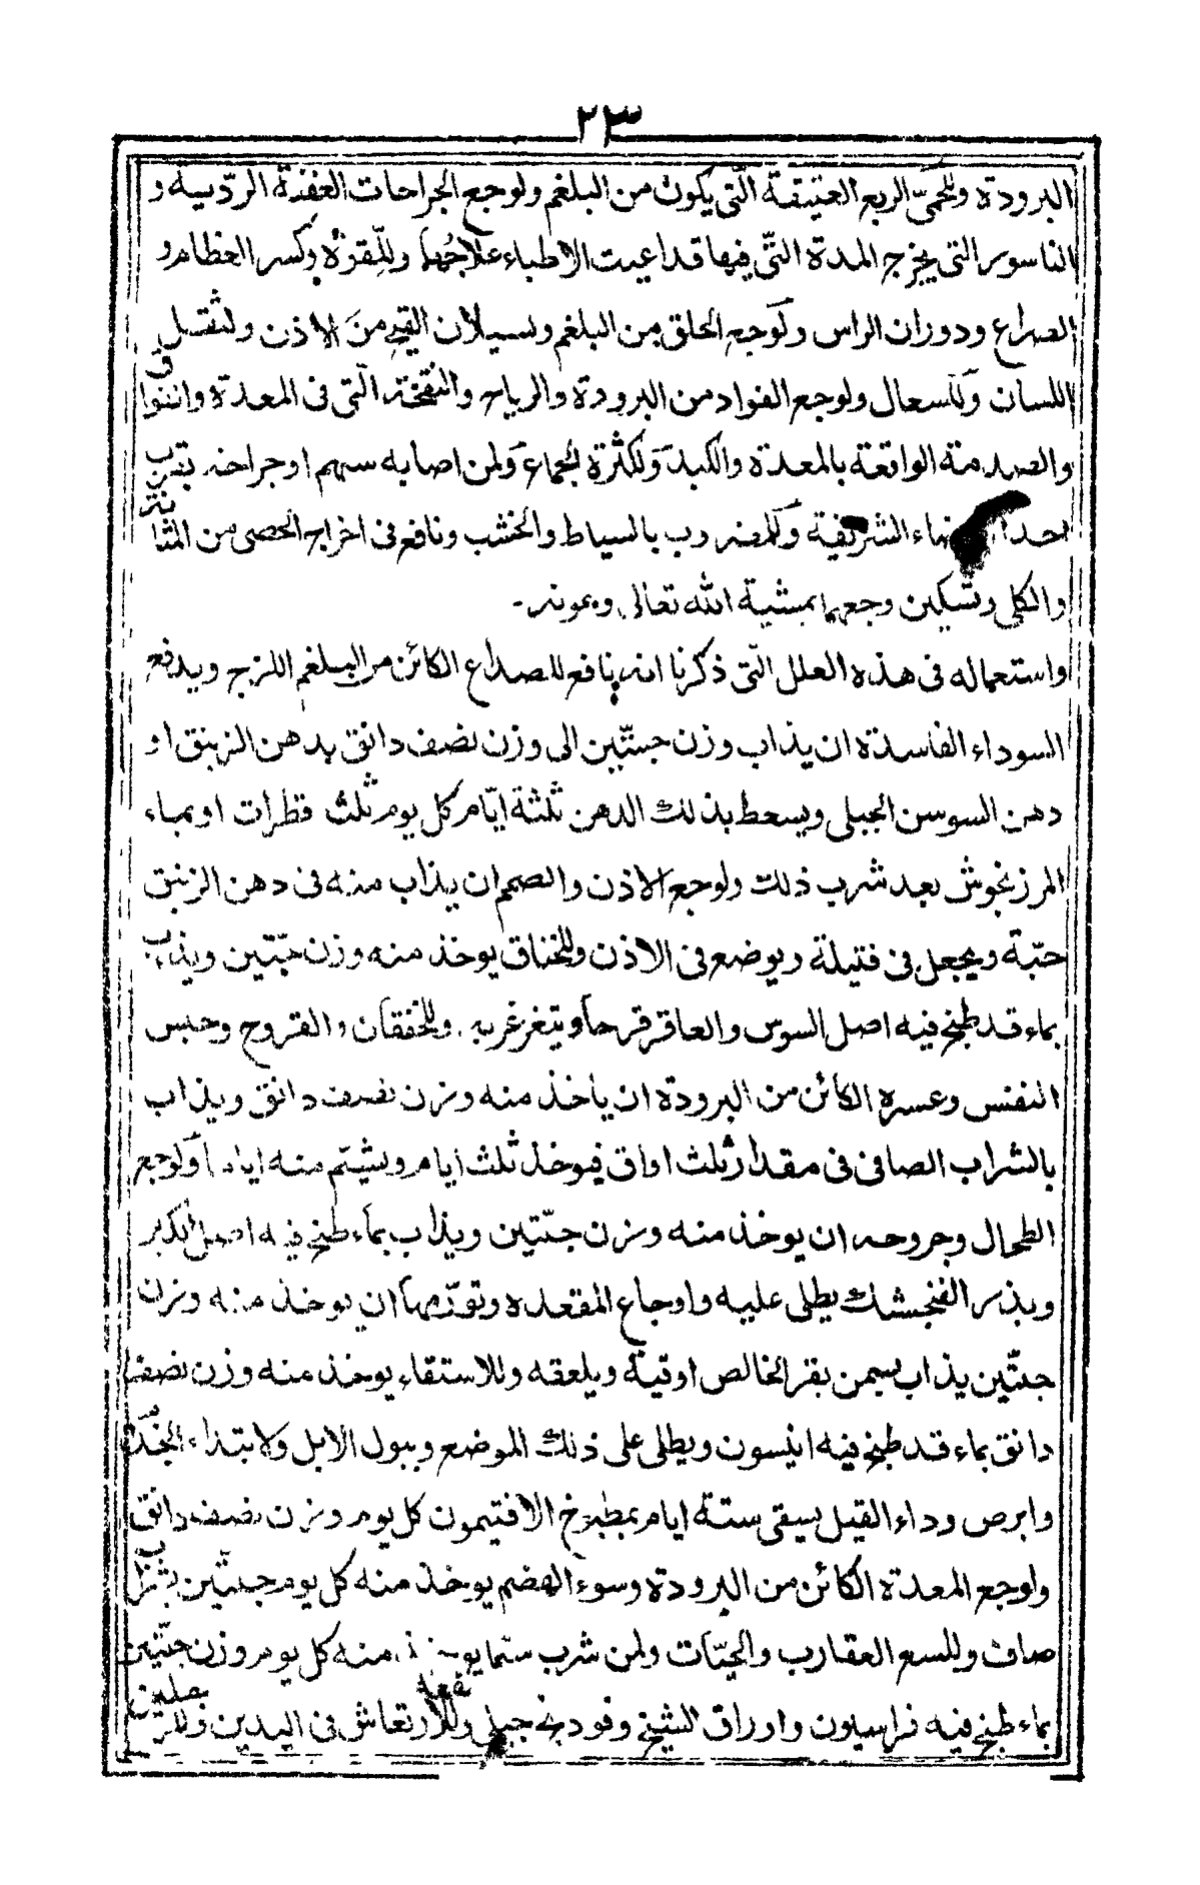 ٢٣
البرودة وللحمىّ الربع العتيقة الّتى يكون من البلغم ولوجع الجراحات العفنة الردّيه و
الناسور التى يخرج المدة التّى فيها قد اعيت الاطباء علاجُها وللِّقوة وكسر العظام و
الصداع ودوران الراس ولوجع الحلق من البلغم وسيلان القيح منَ الاذن ولثقل
اللسان وللسعال ولوجع الفواد من البرودة والرياح والنفخة الّتى فى المعدة والفواق
والصدمة الواقعة بالمعدة والكبد ولكثرة الجماع ولمن اصابه سهم او جراحة بقرب
احد الشريفة وللمضروب بالسياط والخشب ونافع فى اخراج الحصى من المثانة
والكلى وتسكين وجعهما بمشية الله تعالى وبعونه -
واستعماله فى هذه العلل الّتى ذكرنا انه نافع للصداع الكائن من البلغم اللزج ويدفع
السوداء الفاسدة ان يذاب وزن حبتّين الى وزن نصف دانق بدهن الزنبق او
دهن السوسن الجبلى ويسعط بذلك الدهن ثلثة ايّام كل يوم ثلث قطرات او بماء
المرزنجوش بعد شرب ذلك ولوجع الاذن والصمم ان يذاب منه فى دهن الزنبق
حبّة ويجعل فى فتيلة ويوضع فى الاذن وللخناق يوخذ منه وزن حبّتين ويذاب
بماء قد طبخ فيه اصل السوس والعاقرقرحا ويتغرغر به . وللخفقان والقروح وحبس
النفس وعسره الكائن من البرودة ان ياخذ منه وزن نصف دانق ويذاب
بالشراب الصافى فى مقدار ثلث اواق فيوخذ ثلث ايام ويشتم منه اياما ولوجع
الطحال وجروحه ان يوخذ منه وزن حبّتين ويذاب بماء طبخ فيه اصل الكبر
وبذر الفنجشك يطلى عليه واوجاع المقعده وتورّمها ان يوخذ منه وزن
حبتّين يذاب بسمن بقر الخالص اوقية ويلعقه وللاستقاء يوخذ منه وزن نصف
دانق بماء قد طبخ فيه انيسون ويطلى على ذلك الموضع وببول الابل ولابتداء الجذام
وابرص وداء الفيل يسقى ستة ايام بمطبوخ الافتيمون كل يوم وزن نصف دانق
ولوجع المعدة الكائن من البرودة وسوء الهضم يوخذ منه كل يوم حبتّين بشراب
صاف وللسع العقارب والحيّات ولمن شرب سمّا منه كل يوم وزن حبّتين
بماء طبخ فيه فراسيون واوراق الشيخ وفودنج جبلى نفعه وللارتعاش فى اليدين وللرجلين